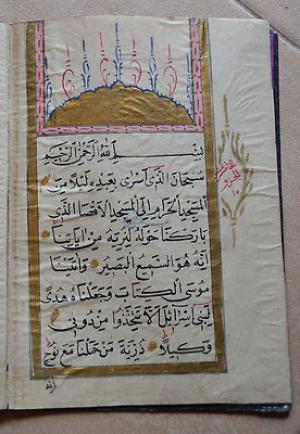 بِسْمِ اللهِ الرَّحْمٰنِ الرَّحِيْمِ
سُبْحَانَ الَّذِي اَسْرٰى بِعَبْدِهِ لَيْلًا مِنَ
الْمَسْجِدِ الْحَرَامِ اِلَى الْمَسْجِدِ الْاَقْصَا الَّذِي
بَارَكْنَا حَوْلَهُ لِنُرِيَهُ مِنْ اٰيَاتِنَا
اِنَّهُ هُوَ السَّمِيعُ الْبَصِيرُ وَاٰتَيْنَا
مُوسَى الْكِتَابَ وَجَعَلْنَاهُ هُدًى
لِبَنِي اِسْرَائِلَ اَلَّا تَتَّخِذُوا مِنْ دُونِي
وَكِيلًا ذُرِّيَّةَ مَنْ حَمَلْنَا مَعَ نُوحٍ
انه